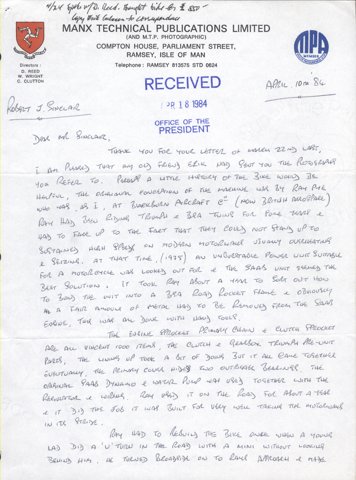 4/24 Spoke w/D. Reed. Bought bike for $ 850
Copy Walt Coleman to correspondence
MANX TECHNICAL PUBLICATIONS LIMITED
(AND M.T.P. PHOTOGRAPHIC)
COMPTON HOUSE, PARLIAMENT STREET,
RAMSEY, ISLE OF MAN
Telephone: RAMSEY 813575 STD 0624
MPA
MEMBER
Directors:
D. REED
W. WRIGHT
C. CLUTTON
RECEIVED
APR 18 1984
OFFICE OF THE
PRESIDENT
APRIL 10TH 84
ROBERT J SINCLAIR
DEAR MR SINCLAIR,
THANK YOU FOR YOUR LETTER OF MARCH 22ND LAST,
I AM PLEASED THAT MY OLD FRIEND ERIK HAD SENT YOU THE PHOTOGRAPHS
YOU REFER TO. PERHAPS A LITTLE HISTORY OF THE BIKE WOULD BE
HELPFUL, THE ORIGINAL CONCEPTION OF THE MACHINE WAS BY RAY
WHO WAS AS I, AT BLACKBURN AIRCRAFT Co (NOW BRITISH AEROSPACE)
RAY HAD BEEN RIDING TRIUMPH & BSA TWINS FOR SOME YEARS &
HAD TO FACE UP TO THE FACT THAT THEY COULD NOT STAND UP TO
SUSTAINED HIGH SPEEDS ON MODERN MOTORWAYS USUALLY OVERHEATING
& SEIZING, AT THAT TIME, (1975) AN UNBURSTABLE POWER UNIT SUITABLE
FOR A MOTORCYCLE WAS LOOKED OUT FOR & THE SAAB UNIT SEEMED THE
BEST SOLUTION. IT TOOK RAY ABOUT A YEAR TO SORT OUT HOW
TO BOLT THE UNIT INTO A BSA ROAD ROCKET FRAME & OBVIOUSLY
AS A FAIR AMOUNT OF METAL HAD TO BE REMOVED FROM THE SAAB
ENGINE, THIS WAS ALL DONE WITH HAND TOOLS.
THE ENGINE SPROCKET PRIMARY CHAIN & CLUTCH SPROCKET
ARE ALL VINCENT 1000 ITEMS, THE CLUTCH & GEARBOX TRIUMPH PRE-UNIT
PARTS, THE LINING UP TOOK A BIT OF DOING BUT IT ALL CAME TOGETHER
EVENTUALLY, THE PRIMARY COVER HIDES TWO OUTRIGGER BEARINGS, THE
ORIGINAL SAAB DYNAMO & WATER PUMP WAS USED TOGETHER WITH THE
RADIATOR & WIRING. RAY USED IT ON THE ROAD FOR ABOUT A YEAR
& IT DID THE JOB IT WAS BUILT FOR VERY WELL TAKING THE MOTORWAYS
IN ITS STRIDE.
RAY HAD TO REBUILD THE BIKE ONCE WHEN A YOUNG
LAD DID A 'U' TURN IN THE ROAD WITH A MINI WITHOUT LOOKING
BEHIND HIM, HE TURNED BROADSIDE ON TO RAYS APPROACH & MADE